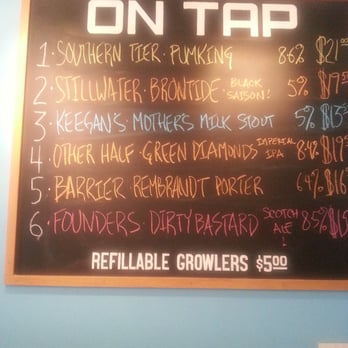 ON TAP
1. SOUTHERN TIER. PUMKING 8.6% $21
2. STILLWATER. BRONTIDE. BLACK SAISON! 5%
3. KEEGAN'S. MOTHER'S MILK STOUT 5%
4. OTHER HALF. GREEN DIAMONDS IMPERIAL IPA 8.4% $19
5. BARRIER REMBRANDT PORTER $16
6. FOUNDERS. DIRTY BASTARD SCOTCH ALE! 8.5% $15
REFILLABLE GROWLERS $5.00